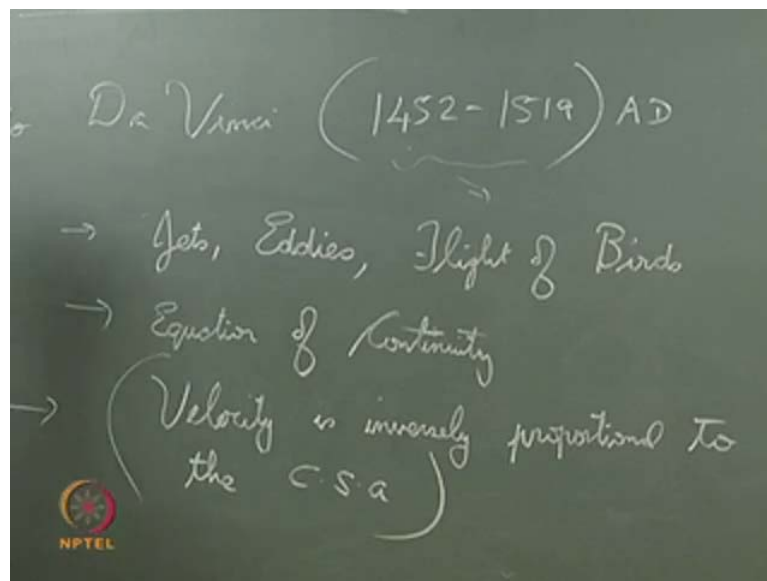 o Da Vinci (1452-1519) AD
→ Jets, Eddies, Flight of Birds
→ Equation of Continuity
→ (Velocity is inversely proportional to
the c.s.a)
NPTEL